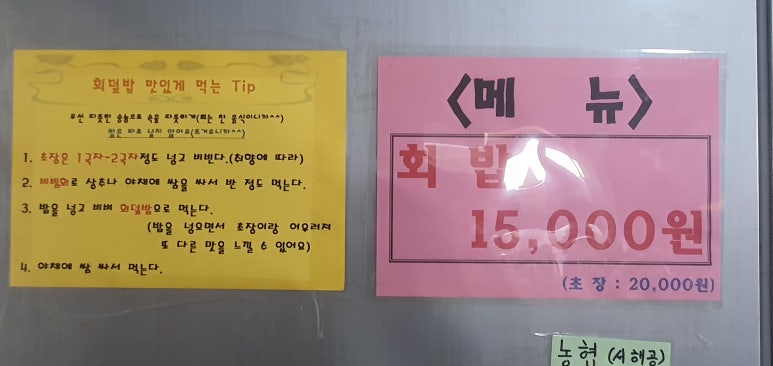 회덮밥 맛있게 먹는 Tip
우선 따뜻한 숭늉으로 속을 따뜻하게(회는 찬 음식이니까^^)
밥은 바로 넣지 않아요(뜨거우니까^^)
1. 초장은 1국자~2국자정도 넣고 비빈다.(취향에 따라)
2. 비빔회로 상추나 야채에 쌈을 싸서 반 정도 먹는다.
3. 밥을 넣고 비벼 회덮밥으로 먹는다.
(밥을 넣으면서 초장이랑 어우러져
또 다른 맛을 느낄 수 있어요)
4. 야채에 쌈 싸서 먹는다.
<메 뉴>
회 밥
15,000원
(초 장 : 20,000원)
농협 (서해공)